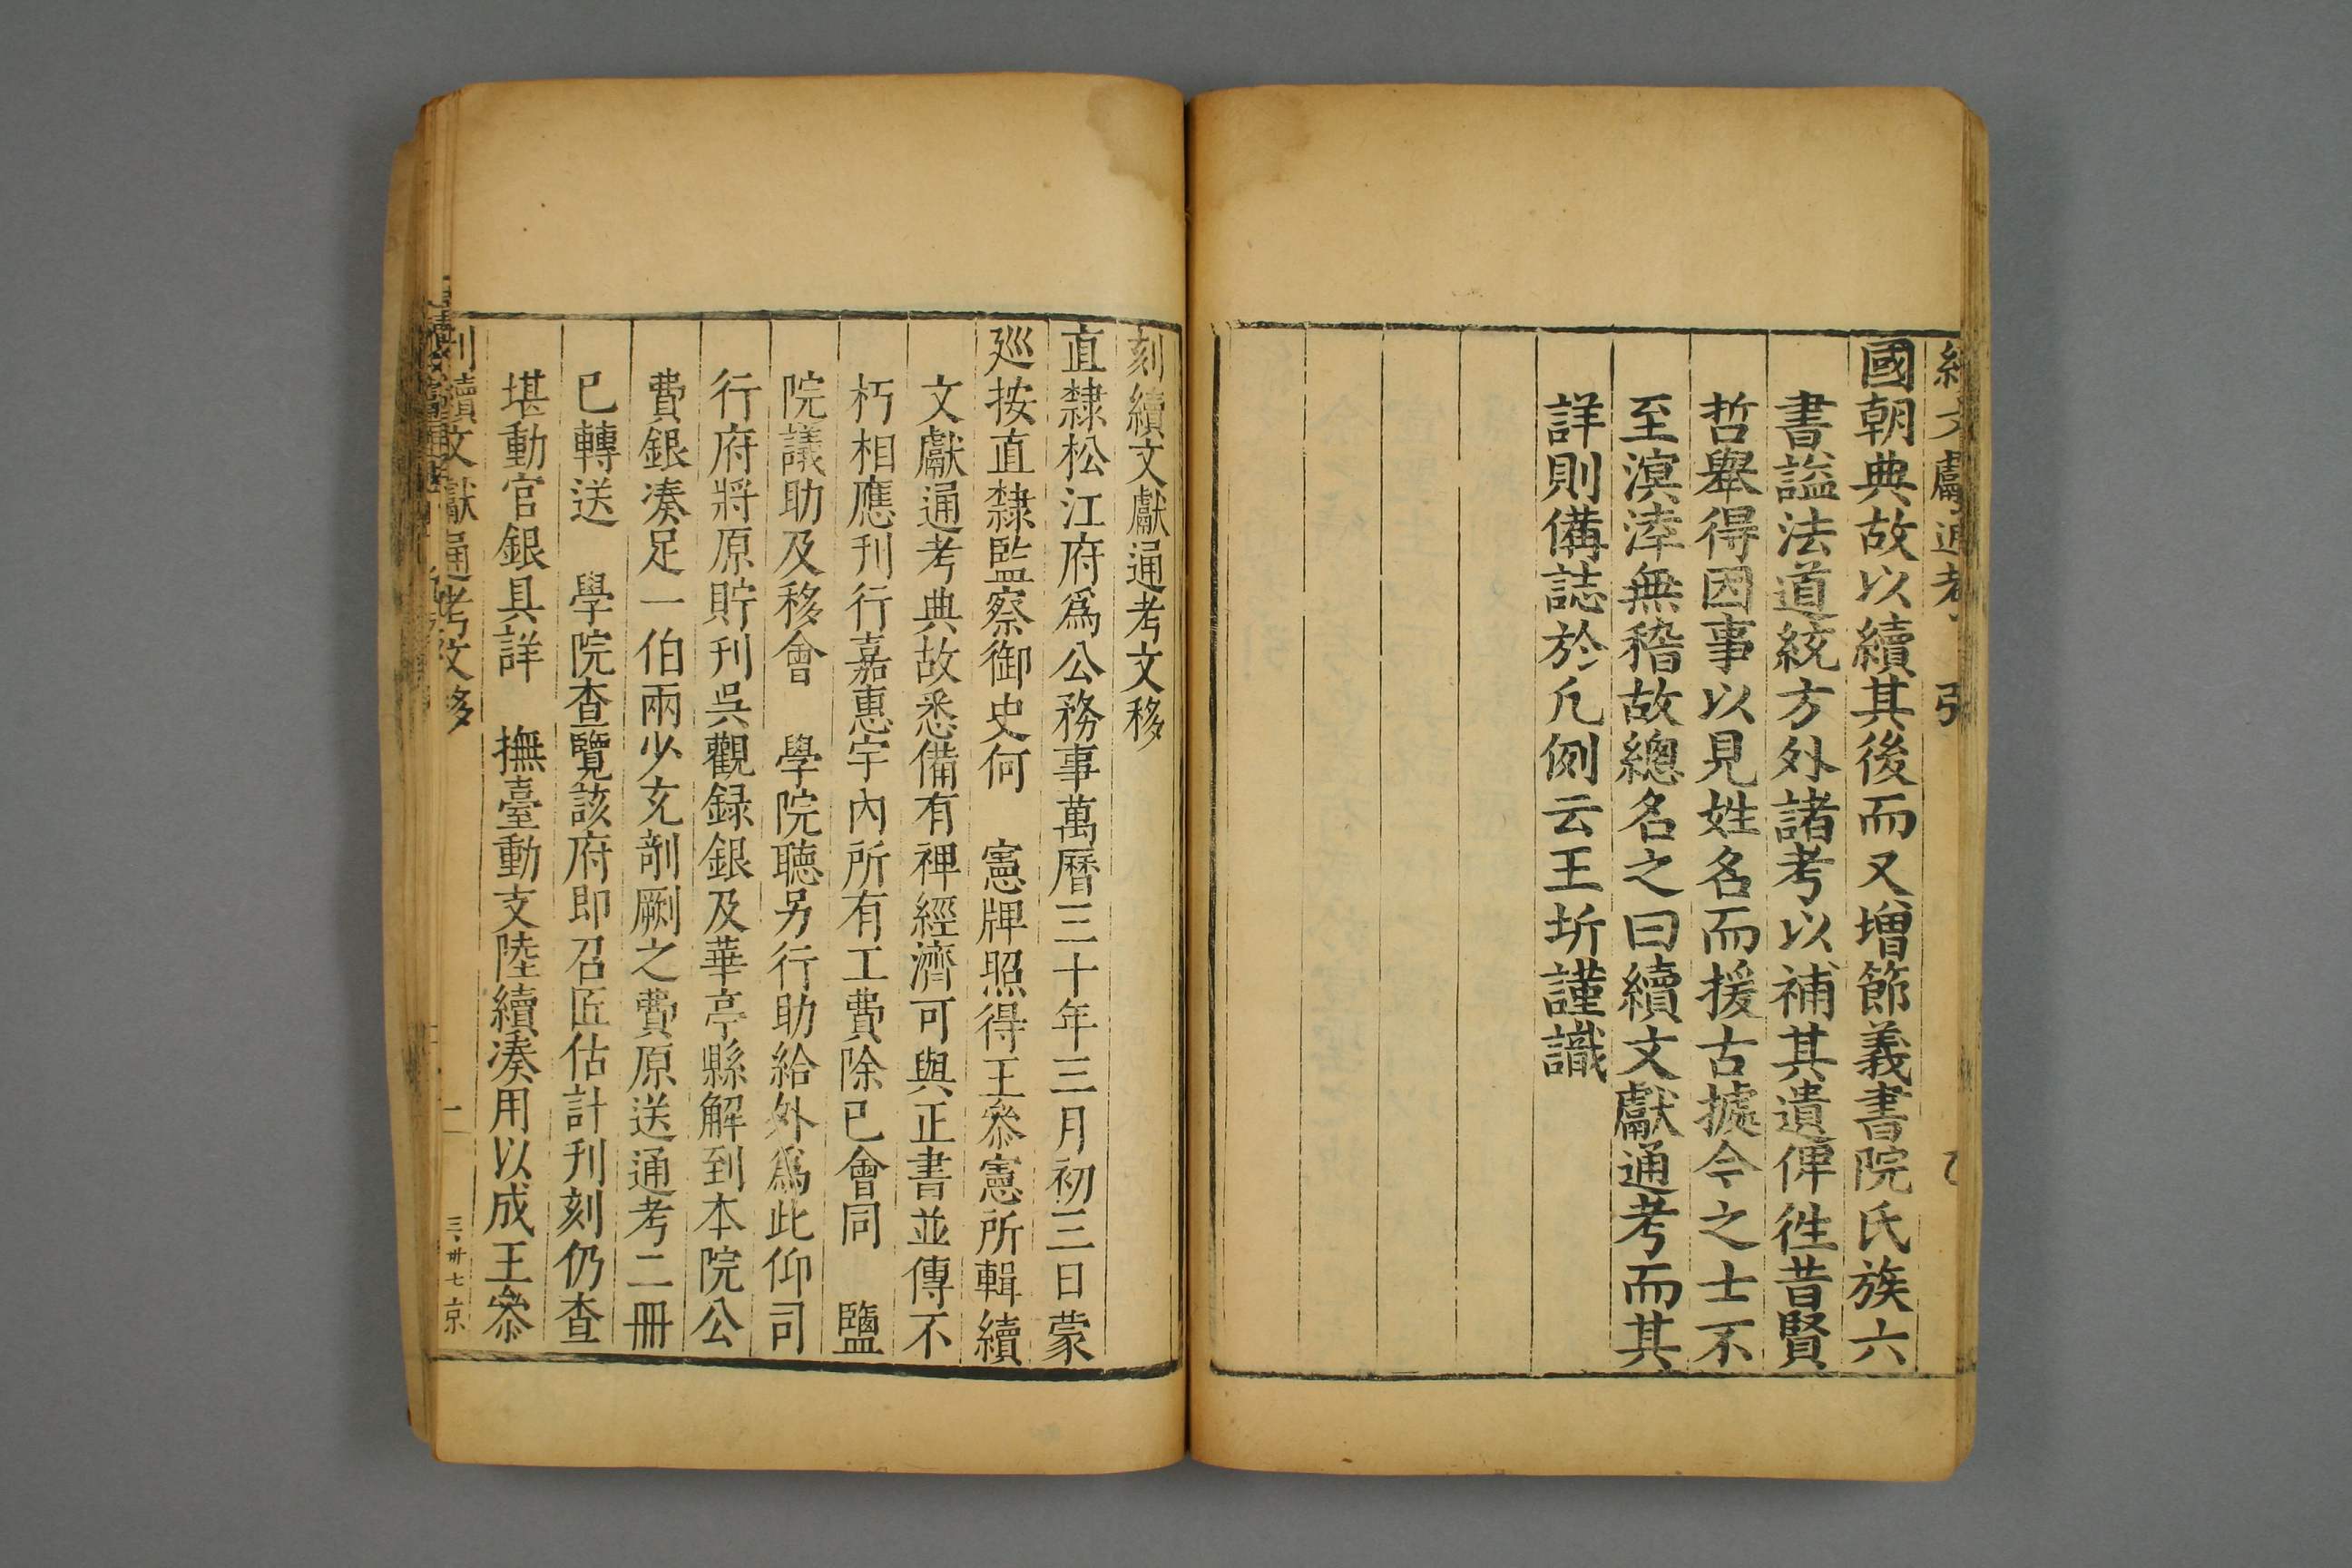 文獻通考 引
國朝典故以續其後而又增節義書院氏族六
書謚法道統方外諸考以補其遺俾徃昔賢
哲舉得因事以見姓名而援古據今之士不
至溟涬無稽故總名之曰續文獻通考而其
詳則備誌於凡例云王圻謹識
刻續文獻通考文移
直隸松江府爲公務事萬曆三十年三月初三日蒙
廵按直隸監察御史何 憲牌照得王叅憲所輯續
文獻通考典故悉備有裨經濟可與正書並傳不
朽相應刊行嘉惠宇內所有工費除已會同 鹽
院議助及移會 學院聽另行助給外爲此仰司
行府將原貯刊吳觀録銀及華亭縣解到本院公
費銀凑足一伯兩少充剞劂之費原送通考二冊
已轉送 學院查覽該府即召匠估計刊刻仍查
堪動官銀具詳 撫臺動支陸續凑用以成王叅
續文獻通考文移 二 三卅七京